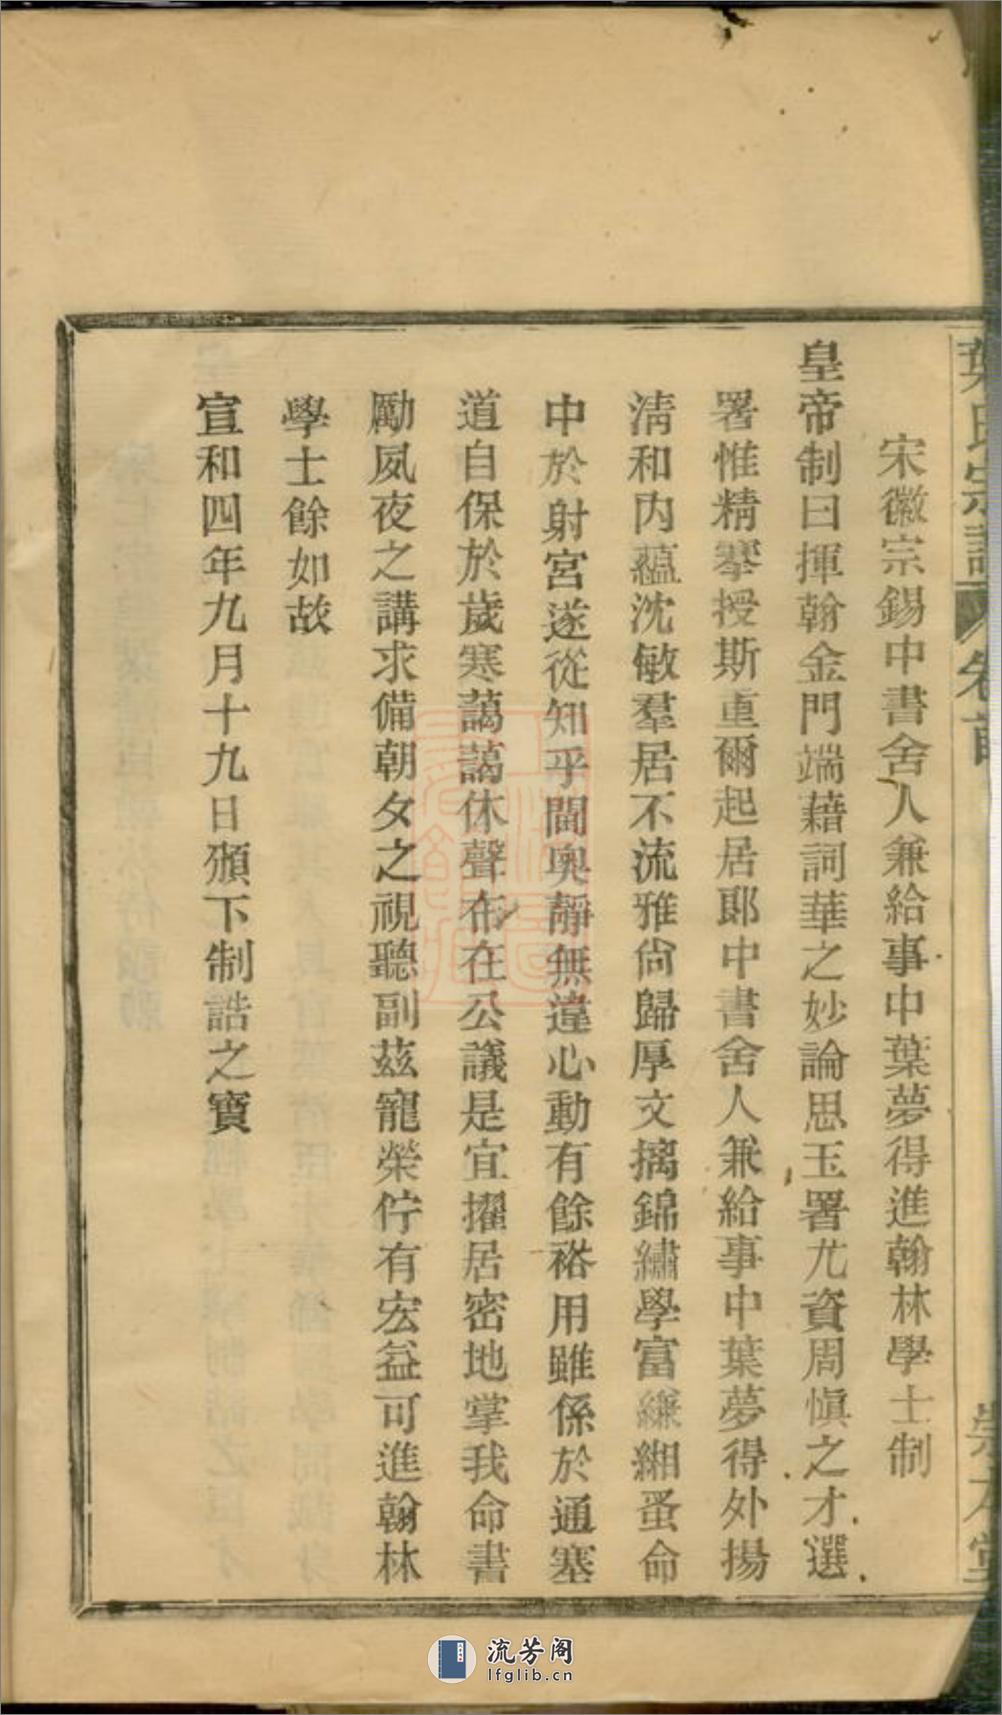 葉氏宗譜 卷首 崇本堂
宋徽宗錫中書舍人兼給事中葉夢得進翰林學士制
皇帝制曰揮翰金門端藉詞華之妙論思玉署尤資周愼之才選
署惟精搴授斯重爾起居郎中書舍人兼給事中葉夢得外揚
淸和內蘊沈敏羣居不流雅尙歸厚文摛錦繡學富縑緗蚤命
中於射宮遂從知乎閫奧靜無違心動有餘裕用雖係於通塞
道自保於歲寒藹藹休聲布在公議是宜擢居密地掌我命書
勵夙夜之講求備朝夕之視聽副茲寵榮佇有宏益可進翰林
學士餘如故
宣和四年九月十九日頒下制誥之寳
流芳阁
lfglib.cn